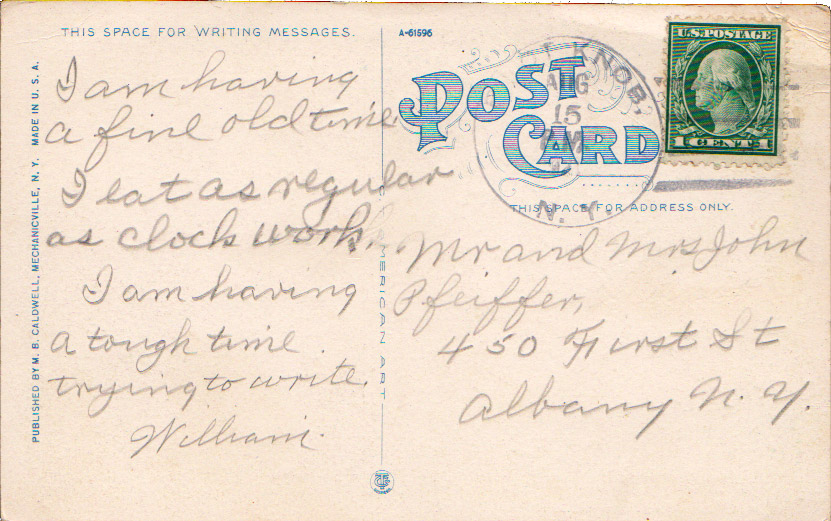 THIS SPACE FOR WRITING MESSAGES.
A-61596
I am having
a fine old time
I eat as regular
as clock work.
I am having
a tough time
trying to write.
William.
PUBLISHED BY M. B. CALDWELL, MECHANICVILLE, N. Y. MADE IN U. S. A.
AMERICAN ART
POST
CARD
KNOB,
AUG
15
N. Y.
U.S. POSTAGE
1 CENT 1
THIS SPACE FOR ADDRESS ONLY.
Mr and Mrs John
Pfeiffer,
450 First St
Albany N. Y.